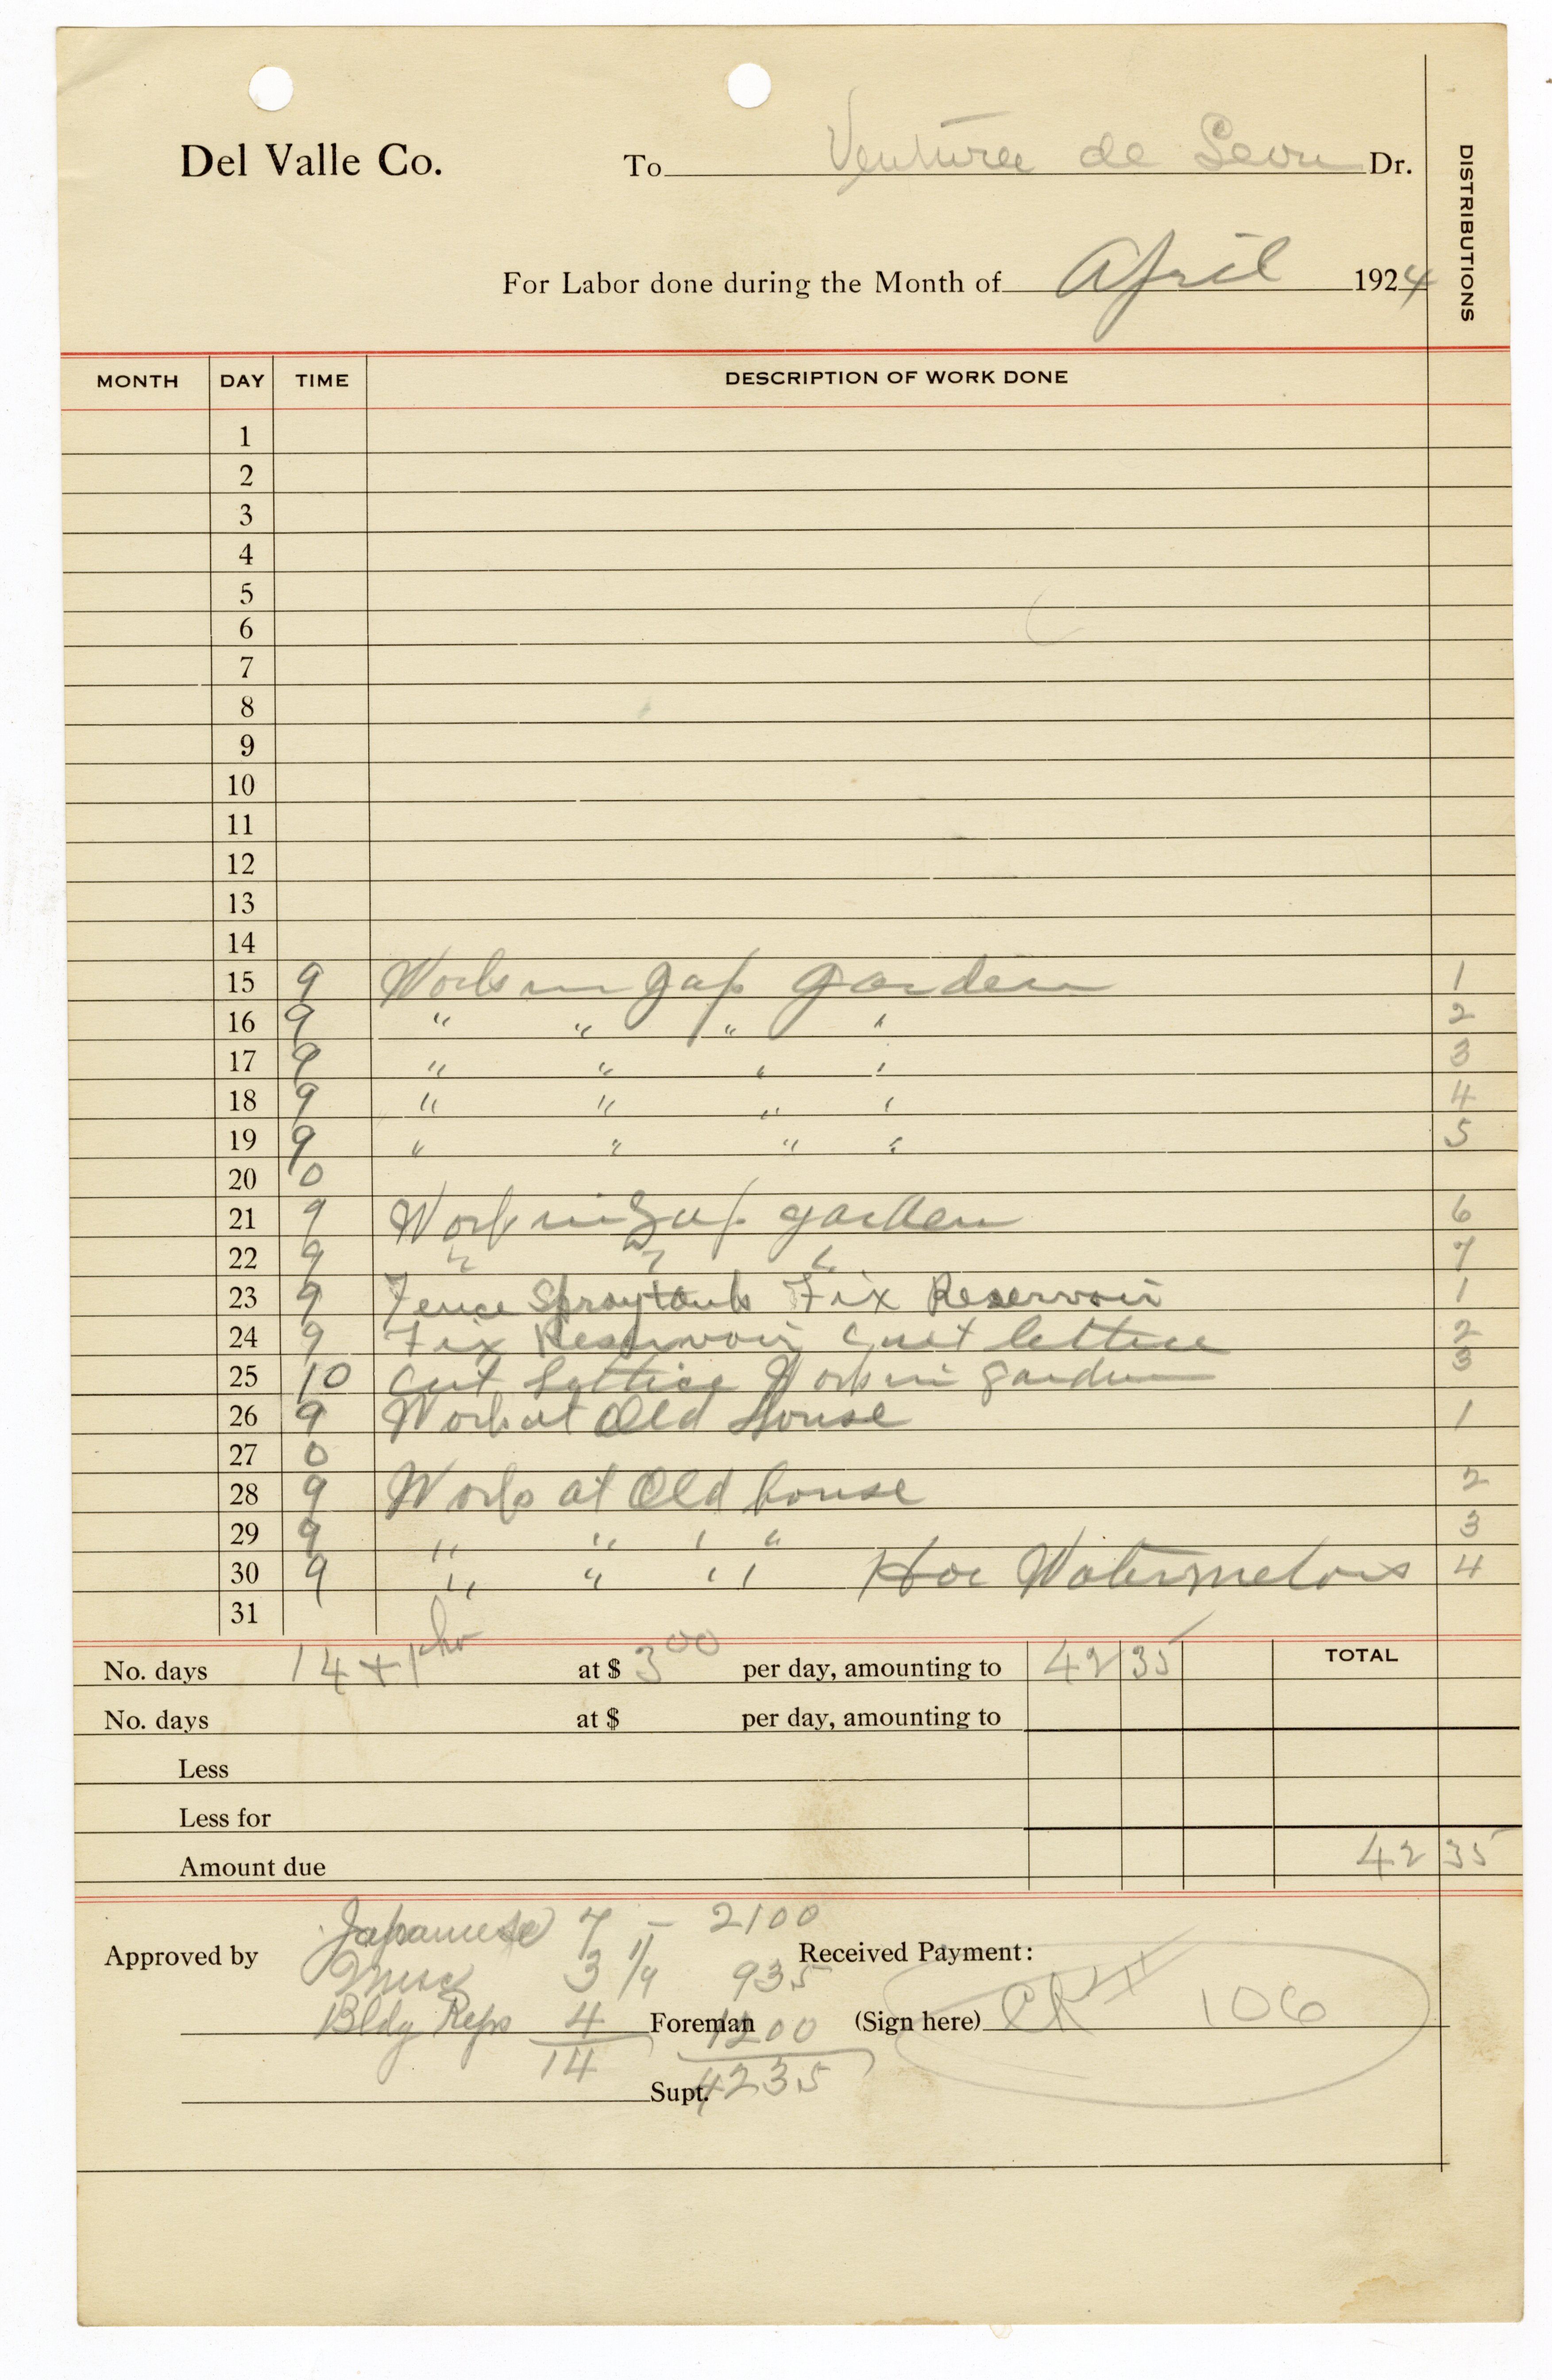 Del Valle Co. To Ventura de Leon Dr.
DISTRIBUTIONS
For Labor done during the Month of April 1924
MONTH DAY TIME DESCRIPTION OF WORK DONE
1
2
3
4
5
6
7
8
9
10
11
12
13
14
15 9 Work in Jap garden 1
16 9 " " " " 2
17 9 " " " " 3
18 9 " " " " 4
19 9 " " " " 5
20 0
21 9 Work in Jap. garden 6
22 9 " " " 7
23 9 Fence Spraytank Fix Reservoir 1
24 9 Fix Reservoir Cut lettice 2
25 10 Cut Lettice Work in garden 3
26 9 Work at Old House 1
27 0
28 9 Work at Old house 2
29 9 " " " " 3
30 9 " " " " Hoe Watermelons 4
31
No. days 14 + 1 hr at $ 3 00 per day, amounting to 42 35 TOTAL
No. days at $ per day, amounting to
Less
Less for
Amount due 42 35
Japanese 7 - 2100
Approved by Received Payment:
Misc 3 1/9 935
Bldg Reps 4 Foreman 1200 (Sign here) CK# 106
14 4235
Supt.